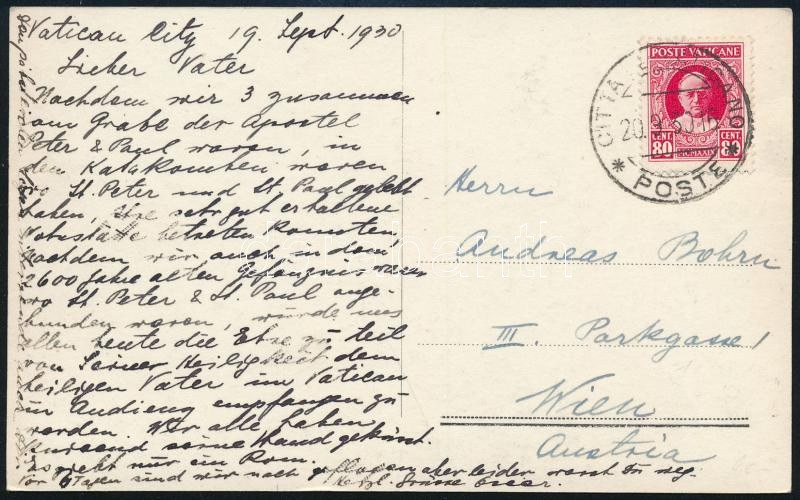 Vatican City 19. Sept. 1930
Lieber Vater
Nachdem wir 3 zusammen
am Grabe der Apostel
Peter & Paul waren, in
den Katakomben waren
wo St. Peter und St. Paul gelebt
haben, ihre sehr gut erhaltene
betreten konnten,
Nachdem wir auch in dem
2600 Jahre alten Gefängnis waren
wo St. Peter & St. Paul ange-
bunden waren, wurde uns
allen heute die Ehre zu teil
von Seiner Heiligkeit dem
heiligen Vater im Vatican
in Audienz empfangen zu
werden. Wir alle haben
knieend seine Hand geküsst.
Es geht nur in Rom.
Vor Tagen sind wir nach geflogen aber leider warst Du weg.
Herzl. Grüsse Oscar.
POSTE VATICANE
80 CENT. CENT. 80
MCMXXIX
CITTA DEL VATICANO
20.9.30.15
* POSTE *
Herrn
Andreas Bohrn
III. Parkgasse 1
Wien
Austria